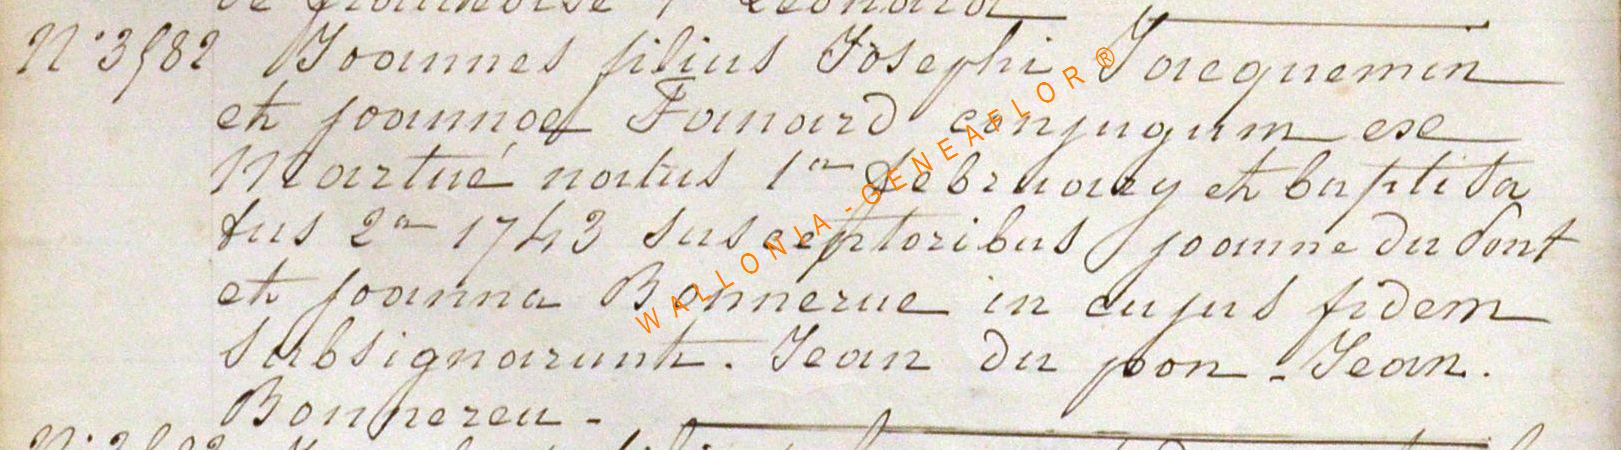 de françoise t Leonard
N° 3582 Joannes filius Josephi Jacquemin
et joannae Fanard conjugum ex
Martué natus 1a februarij et baptisa
tus 2a 1743 susceptoribus joanne du pont
et joanna Bonnerue in cujus fidem
subsignarunt. Jean du pon - Jean.
Bonnereu -
WALLONIA-GENEAFLOR®